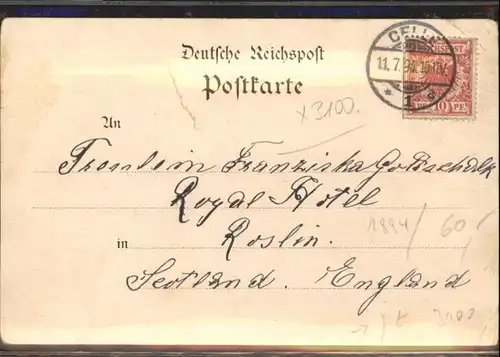 CELLE
11.7.94.
* 1 a
10 PF.
Deutsche Reichspost
Postkarte
x3100.
An
Fromlein Franziska Gottschalk
Royal Hotel
in Roslin.
Scotland. England
1894/ 60